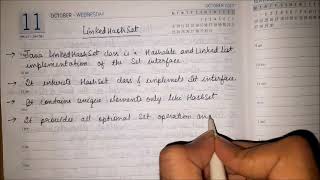 11
OCTOBER - WEDNESDAY
OCTOBER 2017
Linked Hash Set
→ Java LinkedHashSet class is a Hashtable and Linked list
implementation of the Set interface
→ It inherits HashSet class & implements Set interface.
→ It contains unique elements only like HashSet
→ It provides all optional Set operation and